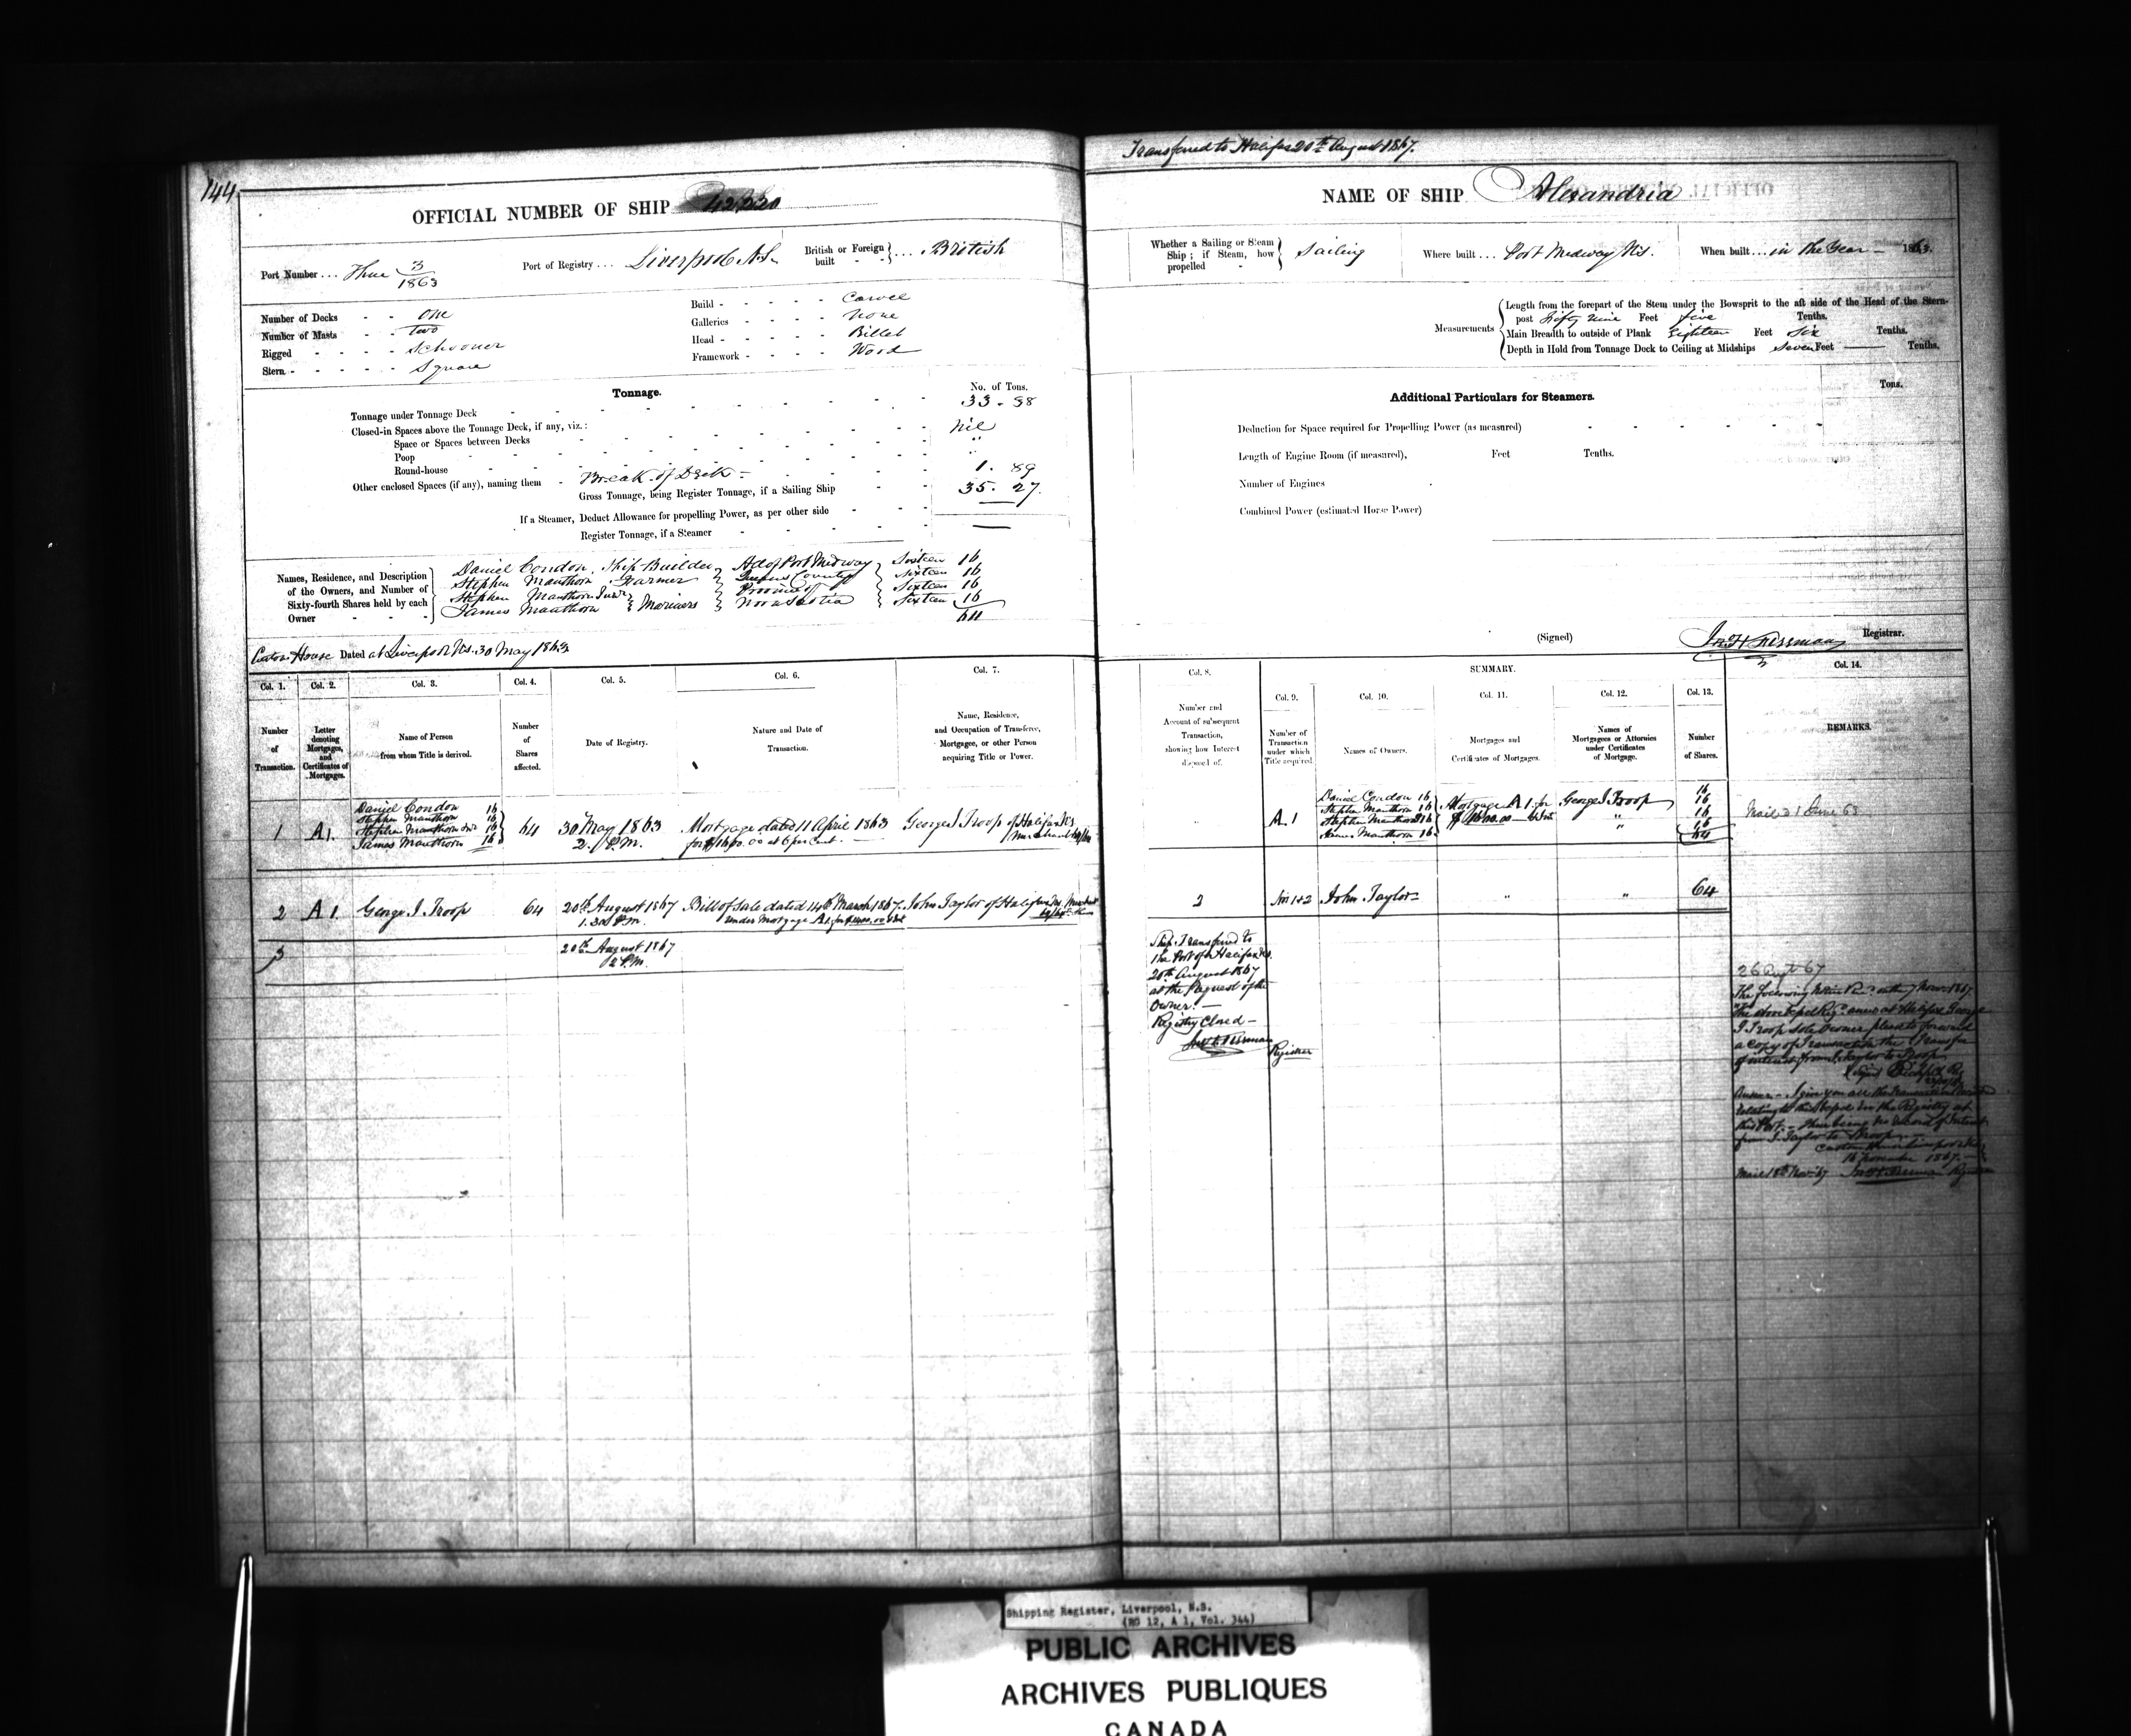 144
OFFICIAL NUMBER OF SHIP
Port Number ... Three 3/1863
Port of Registry ... Liverpool N.S.
British or Foreign built } ... British
Number of Decks - - One
Number of Masts - - Two
Rigged - - - - Schooner
Stern - - - - - Square
Build - - - - - Carvel
Galleries - - - - none
Head - - - - - Billet
Framework - - - - Wood
Tonnage.
No. of Tons.
Tonnage under Tonnage Deck 33.38
Closed-in Spaces above the Tonnage Deck, if any, viz.: nil
Space or Spaces between Decks "
Poop "
Round-house
Other enclosed Spaces (if any), naming them - Break of Deck - 1.89
Gross Tonnage, being Register Tonnage, if a Sailing Ship 35.27
If a Steamer, Deduct Allowance for propelling Power, as per other side
Register Tonnage, if a Steamer
Names, Residence, and Description of the Owners, and Number of Sixty-fourth Shares held by each Owner
Daniel Condon, Ship Builder, All of Port Medway, Sixteen 16
Stephen Manthorn Farmer } Queens County } Sixteen 16
Stephen Manthorn Junr } Province of } Sixteen 16
James Manthorn } Mariners } Nova Scotia } Sixteen 16
64
Custom House Dated at Liverpool N.S. 30 May 1863
Col. 1. Col. 2. Col. 3. Col. 4. Col. 5. Col. 6. Col. 7.
Number of Transaction.
Letter denoting Mortgages, and Certificates of Mortgages.
Name of Person from whom Title is derived.
Number of Shares affected.
Date of Registry.
Nature and Date of Transaction.
Name, Residence, and Occupation of Transferee, Mortgagee, or other Person acquiring Title or Power.
1 A1.
Daniel Condon 16
Stephen Manthorn 16
Stephen Manthorn Junr 16
James Manthorn 16
64 30 May 1863 2. P.M.
Mortgage dated 11 April 1863
for $1600.00 at 6 per cent.
George J Troop of Halifax N.S
2 A1. George J. Troop 64 20th August 1867 1.30 P.M.
Bill of Sale dated 14th March 1867.
under Mortgage A1. for $1600.00
John Taylor of Halifax
3 20th August 1867
2 P.M.
Transferred to Halifax 20th August 1867.
NAME OF SHIP Alexandria
Whether a Sailing or Steam Ship; if Steam, how propelled - } Sailing
Where built ... Port Medway N.S.
When built ... in the Year - 1863.
Measurements
Length from the forepart of the Stem under the Bowsprit to the aft side of the Head of the Stern-
post Fifty nine Feet five Tenths.
Main Breadth to outside of Plank Eighteen Feet Six Tenths.
Depth in Hold from Tonnage Deck to Ceiling at Midships Seven Feet — Tenths.
Additional Particulars for Steamers.
Tons.
Deduction for Space required for Propelling Power (as measured)
Length of Engine Room (if measured), Feet Tenths.
Number of Engines
Combined Power (estimated Horse Power)
(Signed) Jno H Freeman Registrar.
SUMMARY.
Col. 8. Col. 9. Col. 10. Col. 11. Col. 12. Col. 13. Col. 14.
Number and Account of subsequent Transaction, showing how Interest disposed of.
Number of Transaction under which Title acquired.
Names of Owners.
Mortgages and Certificates of Mortgages.
Names of Mortgagees or Attornies under Certificates of Mortgage.
Number of Shares.
REMARKS.
A.1
Daniel Condon 16
Stephen Manthorn 16
Stephen Manthorn 16
James Manthorn 16
Mortgage A1. for
$1600.00
George J Troop
"
"
16
16
16
16
64
Mailed 1 June 63
3 No 1+2 John Taylor " " 64
Ship Transferred to
the Port of Halifax N.S.
20th August 1867
at the Request of the
Owner. —
Registry Closed —
Jno H Freeman
Registrar
The above vessel Regd. anew at Halifax George
J. Troop Sole Owner please to forward
a copy of Transaction the Transfer
of interest from J. Taylor to Troop
Answer - I give you all the transactions
relating to this vessel in the Registry at
this Port. - there being no record of interest
from J. Taylor to Troop
16 November 1867.
Mailed 18th Nov. 67 Jno H Freeman Registrar
Shipping Register, Liverpool, N.S.
(RG 12, A 1, Vol. 344)
PUBLIC ARCHIVES
ARCHIVES PUBLIQUES
CANADA